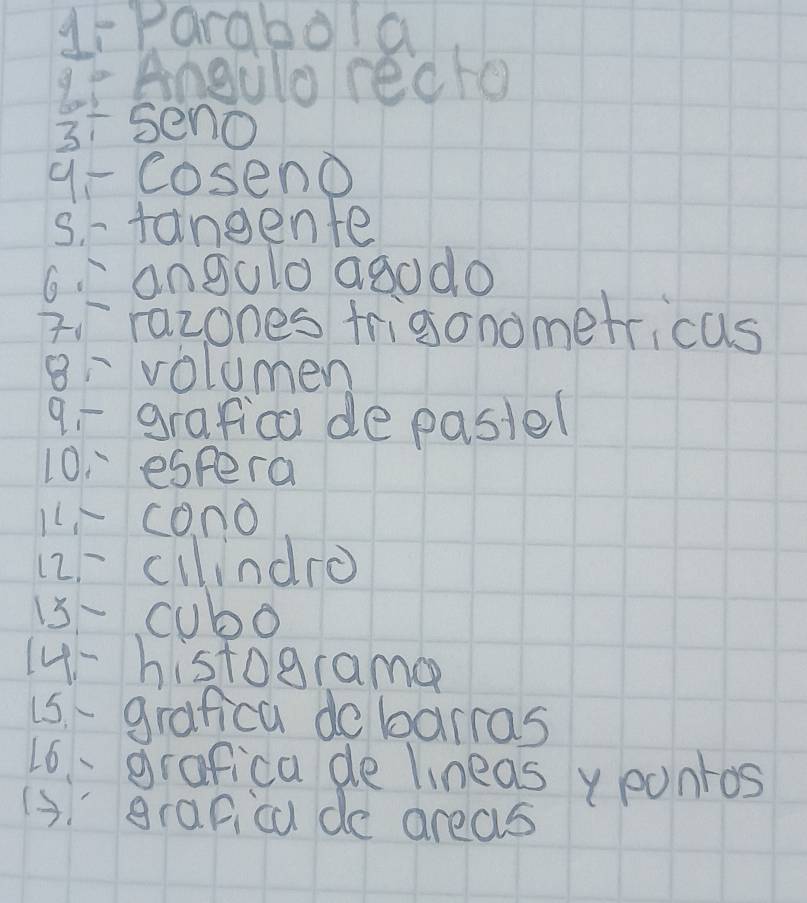 1.- Parabola
2.- Angulo recto
3.- seno
4.- Coseno
5.- tangente
6.- angulo agudo
7.- razones trigonometricas
8.- volumen
9.- grafica de pastel
10.- esfera
11.- cono
12.- cilindro
13.- cubo
14.- histograma
15.- grafica de barras
16.- grafica de lineas y puntos
17.- grafica de areas